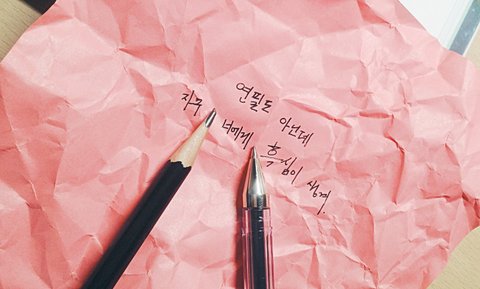 연필도 아닌데
자꾸 너에게 흑심이 생겨.